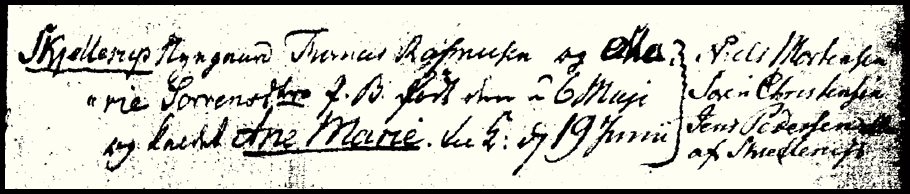 Skjellerup Nyegaard Thomas Rasmusen og Ma
rie Sørrensdtr J. B. født den 6 Maji
og kaldt Ane Marie. d. 19 Junii
Niels Mortensen
Søren Christensen
Jens Pedersen
af Skiellerup